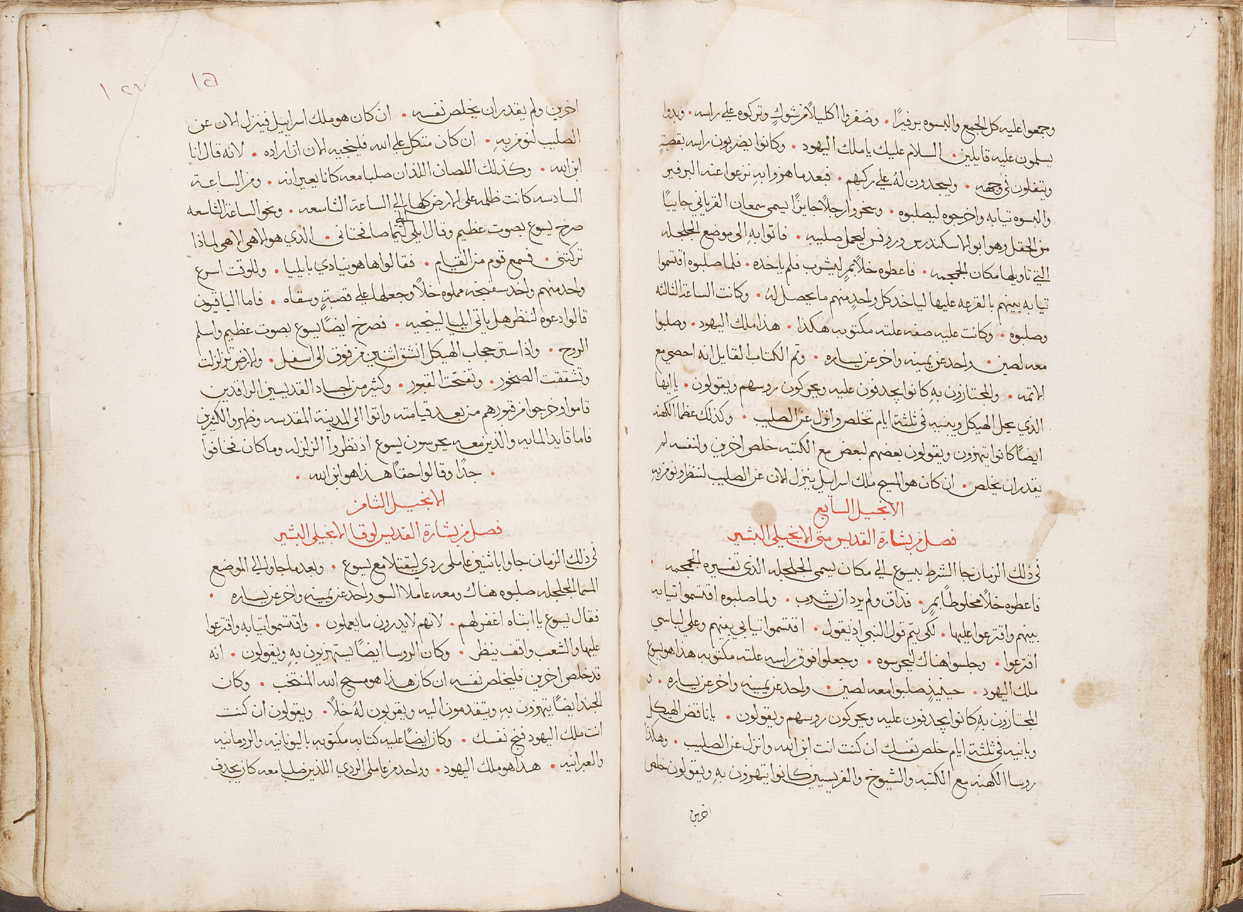 وجمعوا عليه كل الجمع والبسوه برفيرًا • وضفروا اكليلاً من شوكٍ وتركوه على راسه • وبدوا
يسلمون عليه قايلين • السلام عليك يا ملك اليهود • وكانوا يضربون راسه بقصبةٍ
ويتفلون في وجهه • ويسجدون لهُ على ركبهم • فبعد ما هزوا به نزعوا عنه البرفير
والبسوه ثيابه واخرجوه ليصلبوه • وسخروا رجلاً جايزًا يسمى سمعان القرياني جاييًا
من الحقل وهو ابو الاسكندرس وروفس ليحمل صليبه • فاتوا به الى موضع الجلجله
التي تاويلها مكان الجمجمه • فاعطوه خلاً بمرٍ ليشرب فلم ياخذه • فلما صلبوه اقتسموا
ثيابه بينهم بالقرعه عليها لياخذ كل واحدٍ منهم ما يحصل لهُ • وكانت الساعة الثالثه
وصلبوه • وكانت عليه صفه علته مكتوبه هكذا • هذا ملك اليهود • وصلبوا
معه لصين • واحد عن يمينه واخر عن يساره • وتم الكتاب القايل انه احصي مع
الاثمه • والمجتازون به كانوا يجدفون عليه ويحركون روسهم ويقولون • يا ايها
الذي يحل الهيكل ويبنيه في ثلثة ايام تخلص وانزل عن الصليب • وكذلك عظما الكهنه
ايضًا كانوا يتهزون ويقولون بعضهم لبعض مع الكتبه خلص اخرين ولنفسه لم
يقدر ان يخلص • ان كان هو المسيح ملك اسراييل ينزل الان عن الصليب لننظر ونومن به
الانجيل السابع
فصل من بشارة القديس متى الانجيلي البشير
في ذلك الزمان جا الشرط بيسوع الى مكان يسمى الجلجله الذي تفسيره الجمجمه •
فاعطوه خلاً مخلوطًا بمرٍ • فذاق ولم يرد ان يشرب • ولما صلبوه اقتسموا ثيابه
بينهم واقترعوا عليها • لكي يتم قول النبي اذ يقول • اقتسموا ثيابي بينهم وعلى لباسي
اقترعوا • وجلسوا هناك ليحرسوه • وجعلوا فوق راسه علته مكتوبه هذا هو يسوع
ملك اليهود • حينيذٍ صلبوا معه لصين • واحد عن يمينه واخر عن يساره •
المجتازون به كانوا يجدفون عليه ويحركون روسهم ويقولون • يا ناقض الهيكل
وبانيه في ثلثة ايام خلص نفسك ان كنت انت ابن الله وانزل عن الصليب • وهكذا
روسا الكهنه مع الكتبه والشيوخ والفريسيين كانوا يتهزون به ويقولون خلص
اخرين
١٥
اخرين ولم يقدر ان يخلص نفسه • ان كان هو ملك اسراييل فينزل الان عن
الصليب لنومن به • ان كان متكل على الله فلينجيه الان ان اراده • لانه قال انا
ابن الله • وكذلك اللصان اللذان صلبا معه كانا يعيرانه • ومن الساعة
السادسه كانت ظلمه على الارض كلها الى الساعة التاسعه • ونحو الساعة التاسعه
صرخ يسوع بصوت عظيم وقال ايلي ايلي لما صافختاني • الذي هو الاهي الاهي لماذا
تركتني • فسمع قوم من القيام • فقالوا ها هو ينادي بايليا • وللوقت اسرع
واحد منهم واخد سفنجه مملوه خلاً وجعلها على قصبةٍ وسقاه • فاما الباقيون
قالوا دعوه لننظر هل ياتي ايليا لينجيه • فصرخ ايضًا يسوع بصوت عظيم واسلم
الروح • واذا ستر حجاب الهيكل انشق اثنين من فوق الى اسفل • والارض تزلزلت
وتشققت الصخور • وتفتحت القبور • وكثير من اجساد القديسين الراقدين
قاموا وخرجوا من قبورهم من بعد قيامته واتوا الى المدينة المقدسه وظهروا لكثيرين
فاما قايد المايه والذين معه يحرسون يسوع اذ نظروا الزلزله وما كان فخافوا
• جدًا وقالوا حقًا هذا هو ابن الله •
الانجيل الثامن
فصل من بشارة القديس لوقا الانجيلي البشير
في ذلك الزمان جاوا باثنين عاملي ردي ليقتلا مع يسوع • وبعد ما جاوا الى الموضع
المسما الجلجله صلبوه هناك ومعه عاملا السو واحد عن يمينه واخر عن يساره •
فقال يسوع يا ابتاه اغفر لهم • لانهم لا يدرون ما يعملون • واقتسموا ثيابه واقترعوا
عليها والشعب واقف ينظر • وكان الروسا ايضًا يستهزون به ويقولون • انه
قد خلص اخرين فليخلص نفسه ان كان هذا هو مسيح الله المنتخب • وكان
الجند ايضًا يتهزون به ويتقدمون اليه ويقربون لهُ خلاً • ويقولون ان كنت
انت ملك اليهود فنج نفسك • وكان ايضًا عليه كتابه مكتوبه باليونانيه والرومانيه
والعبرانيه • هذا هو ملك اليهود • وواحد من عاملي الردي اللذين صلبا معه كان يجدف